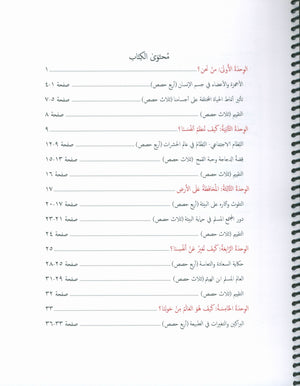 مُحتَوى الكِتاب
الوِحدَةُ الأُولى: مَنْ نَحنُ؟ ١
الأجهزة والأعضاء في جسم الإنسان (أربع حصص) صفحة ١-٤
تأثير أنماط الحياة المختلفة على أجسامنا (ثلاث حصص) ٥-٧
التقييم (ثلاث حصص) صفحة ٨
الوِحدَةُ الثّانِيَةُ: كَيفَ نُنَظِّمُ أنفُسَنا؟ ٩
النظام الاجتماعي: النظام في عالم الحشرات (أربع حصص) ٩-١٢
قصة الدجاجة وحبة القمح (ثلاث حصص) ١٣-١٥
التقييم (ثلاث حصص) صفحة ١٦
الوِحدَةُ الثّالِثَةُ: المُحافَظَةُ عَلى الأَرضِ ١٧
التلوث وآثاره على البيئة (أربع حصص) صفحة ١٧-٢٠
دور المجتمع المسلم في حماية البيئة (ثلاث حصص) ٢١-٢٣
التقييم (ثلاث حصص) صفحة ٢٤
الوِحدَةُ الرّابِعَةُ: كَيفَ نُعَبِّرُ عَنْ أنفُسِنا؟ ٢٥
حكاية السعادة والتعاسة (أربع حصص) صفحة ٢٥-٢٨
العالم المسلم ابن الهيثم (ثلاث حصص) صفحة ٢٩-٣١
التقييم (ثلاث حصص) صفحة ٣٢
الوِحدَةُ الخامِسَةُ: كَيفَ هُوَ العالَمُ مِنْ حَولِنا؟ ٣٣
البراكين والتغيرات في الطبيعة (أربع حصص) صفحة ٣٣-٣٦